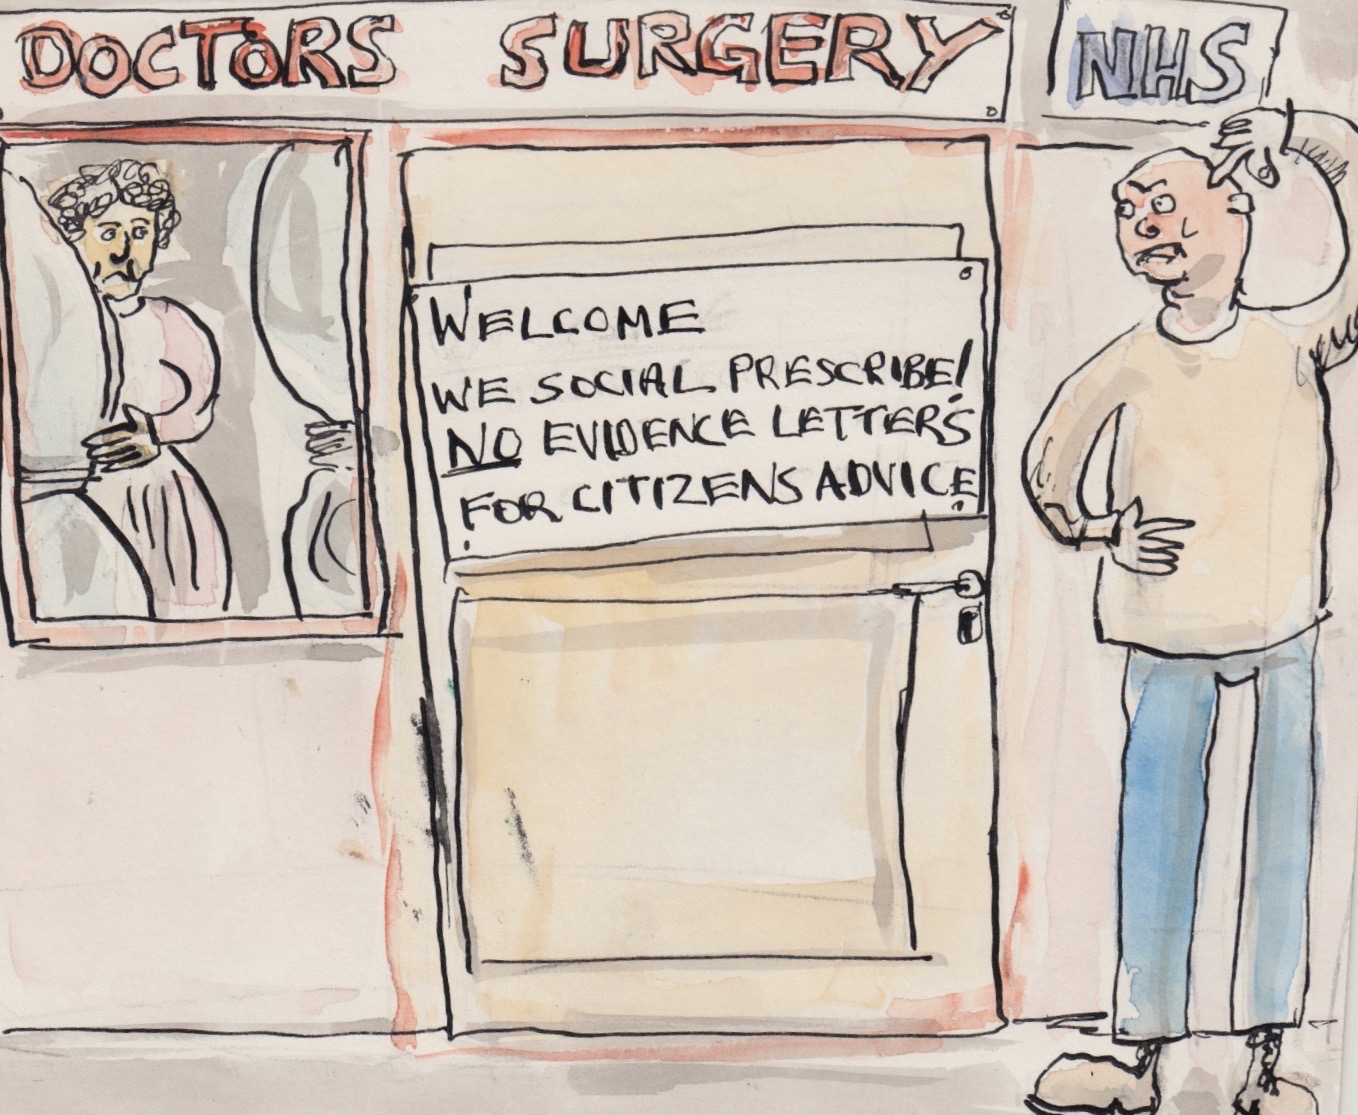 DOCTORS SURGERY
NHS
WELCOME
WE SOCIAL PRESCRIBE!
NO EVIDENCE LETTER'S
FOR CITIZENS ADVICE